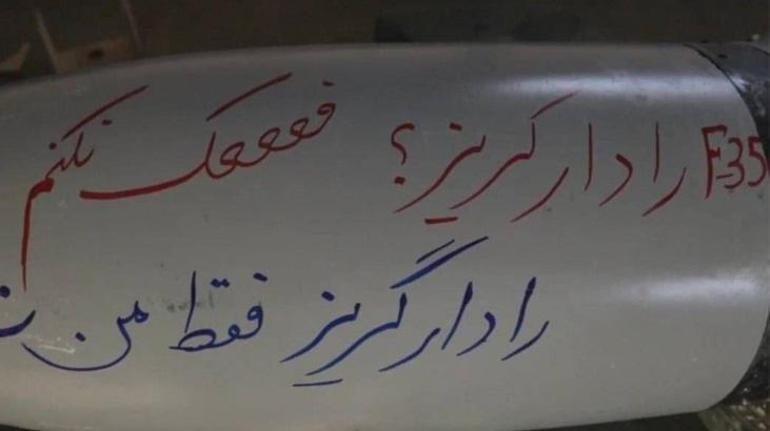 F35 رادارگریز؟ فففففک نکنم
رادارگریز فقط من